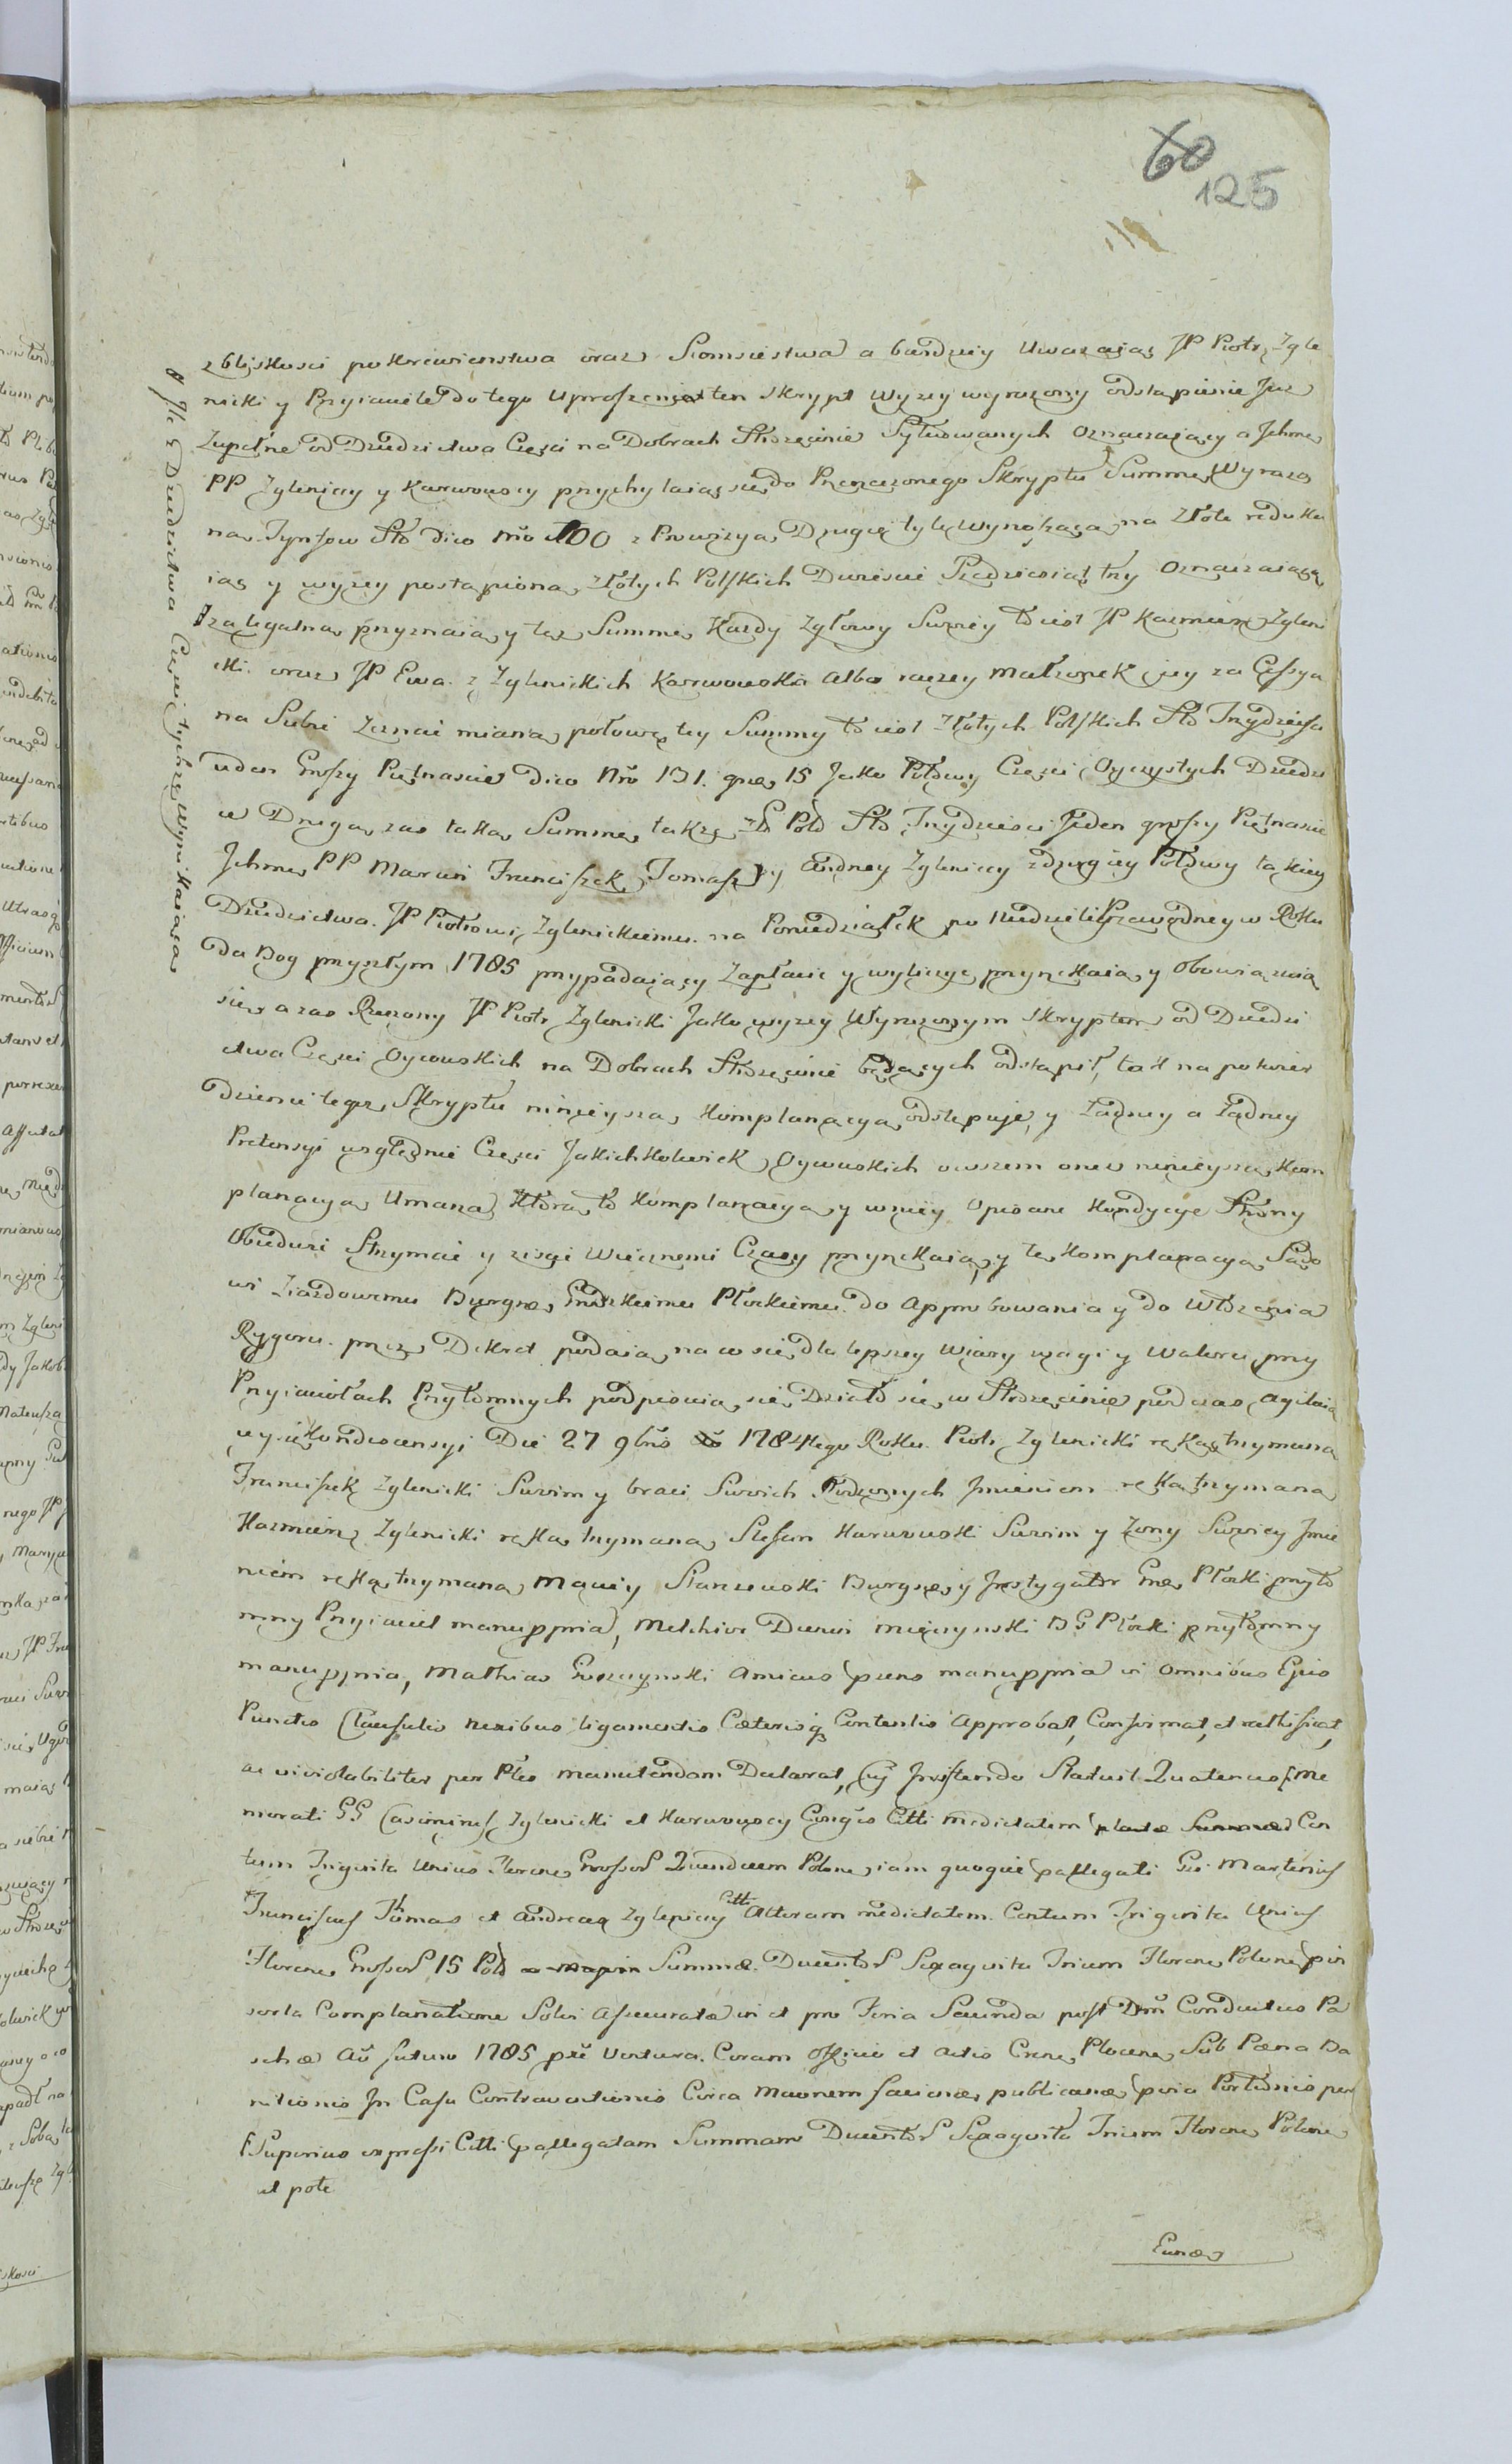 60
125
z bliskosci pokrewienstwa oraz Siomsiestwa a bardziey Uwazaiąc JP Piotr Zgle
nicki y Przyiaciele do tego Uproszeni ten Skrypt Wyzey wyrazony odstąpienie Juz
Zupełne od Dziedzictwa Częsci na Dobrach Strzęcinie Sytuowanych Oznaczaiący a Jchme
PP Zgleniccy y Karwowscy przychylaiąc się do Przerzeczonego Skryptu Summę Wyrazo
ną Tynfow Sto dico Nro 100 z Prowizyą Drugie tyle wynoszącą na Złote reduku
iąc y wyzey postąpioną Złotych Polskich Dwiescie Szesdziesiąt trzy Oznaczaiącą
za legalną przyznaią y tez Summę Kazdy z głowy Swoiey to iest JP Kazmierz Zgleni
cki oraz JP Ewa z Zglenickich Karwowska albo raczey Małzonek iey za Cessyą
na Siebie Zeznać mianą połowę tey Summy to iest Złotych Polskich Sto Trzydziesci
ieden Groszy Piętnascie dico Nro 131. gne 15 Jako Połowy Częsci Oyczystych Dziedzi
ce Drugą zas taką Summę takze Zł Pold Sto Trzydziesci Jeden groszy Piętnascie
Jchme PP Marcin Franciszek Tomasz y Andrzey Zgleniccy z drugiey Połowy takiey
Dziedzictwa JP Piotrowi Zglenickiemu na Poniedziałek po Niedzieli Przewodney w Roku
da Bog przyszłym 1785 przypadaiący Zapłacić y wyliczyć przyrzekaią y Obowiązuią
się a zas Rzeczony JP Piotr Zglenicki Jako wyzey Wyrazonym Skryptem od Dziedzi
ctwa Częsci Oycowskich na Dobrach Strzęcinie będących odstąpił, tak na potwier
dzenie tegoz Skryptu ninieyszą Komplanacyą odstępuje y Zadney a Zadney
Pretensyi względnie Częsci Jakichkolwiek Oycowskich owszem one ninieyszą Kom
planacyą Umarza Którą to Komplanacyą y w niey Opisane Kondycye Strony
Obiedwie Strzymać y ziscić Wiecznemi Czasy przyrzekaią y te Komplanacyą Sądo
wi Ziazdowemu Burgne Grodzkiemu Płockiemu do Approbowania y do Włozenia
Rygoru przez Dekret podaią na co się dla lepszey Wiary wagi y Waloru przy
Przyiaciołach Przytomnych podpisuią się Działo się w Strzęcinie podczas Agituią
cey się Kondescensyi Die 27 9bris 1784tego Roku. Piotr Zglenicki ręką trzymaną
Franciszek Zglenicki Swoim y braci Swoich Rodzonych Jmieniem ręką trzymaną
Kazmierz Zglenicki ręką trzymaną Stefan Karwowski Swoim y Zony Swoiey Jmie
niem ręką trzymaną Maciey Staniewski Burgne y Jnstygator Gne Płocki przyto
mny Przyiaciel manuppria, Melchior Dziewi Mięczynski B G Płocki przytomny
manuppria, Mathias Gurczynski Amicus prens manuppria in Omnibus Ejus
Punctis Clausulis nexibus ligamentis Cæterisq Contentis Approbat, Confirmat, et ratificat,
ac inviolabiliter per Ptes manutendam Declarat, Cuj Jnsistendo Statuit Quatenus me
morati GG Casimirus Zglenicki et Karwowscy Conjges Citti medietatem Cen
tum Triginta Unius Florene Grossor Quindecem Polone, iam quoque pallegati Gi Martinus
Franciscus Thomas et Andreas Zgleniccy Citti Alteram medietatem Centum Triginta Unius
Florene Grossor 15 Pold Summæ Ducentor Sexaginta Trium Florene Polone pin
serta Complanatione Solvi Assecuratæ in et pro Feria Secunda post Dom Conductus Pa
schæ Ao futuro 1785 pxe Ventura Coram Officio et Actis Crene Plocene Sub Pæna Ba
nitionis Jn Casu Contraventionis Circa Mternem faciane publicane pvia Portionis per
Superius expressi Citti pallegatam Summam Ducentor Sexaginta Trium Florene Polone
ut pote
Eunes
Jle z Dziedzictwa Częsci tychze Wynikaiącą